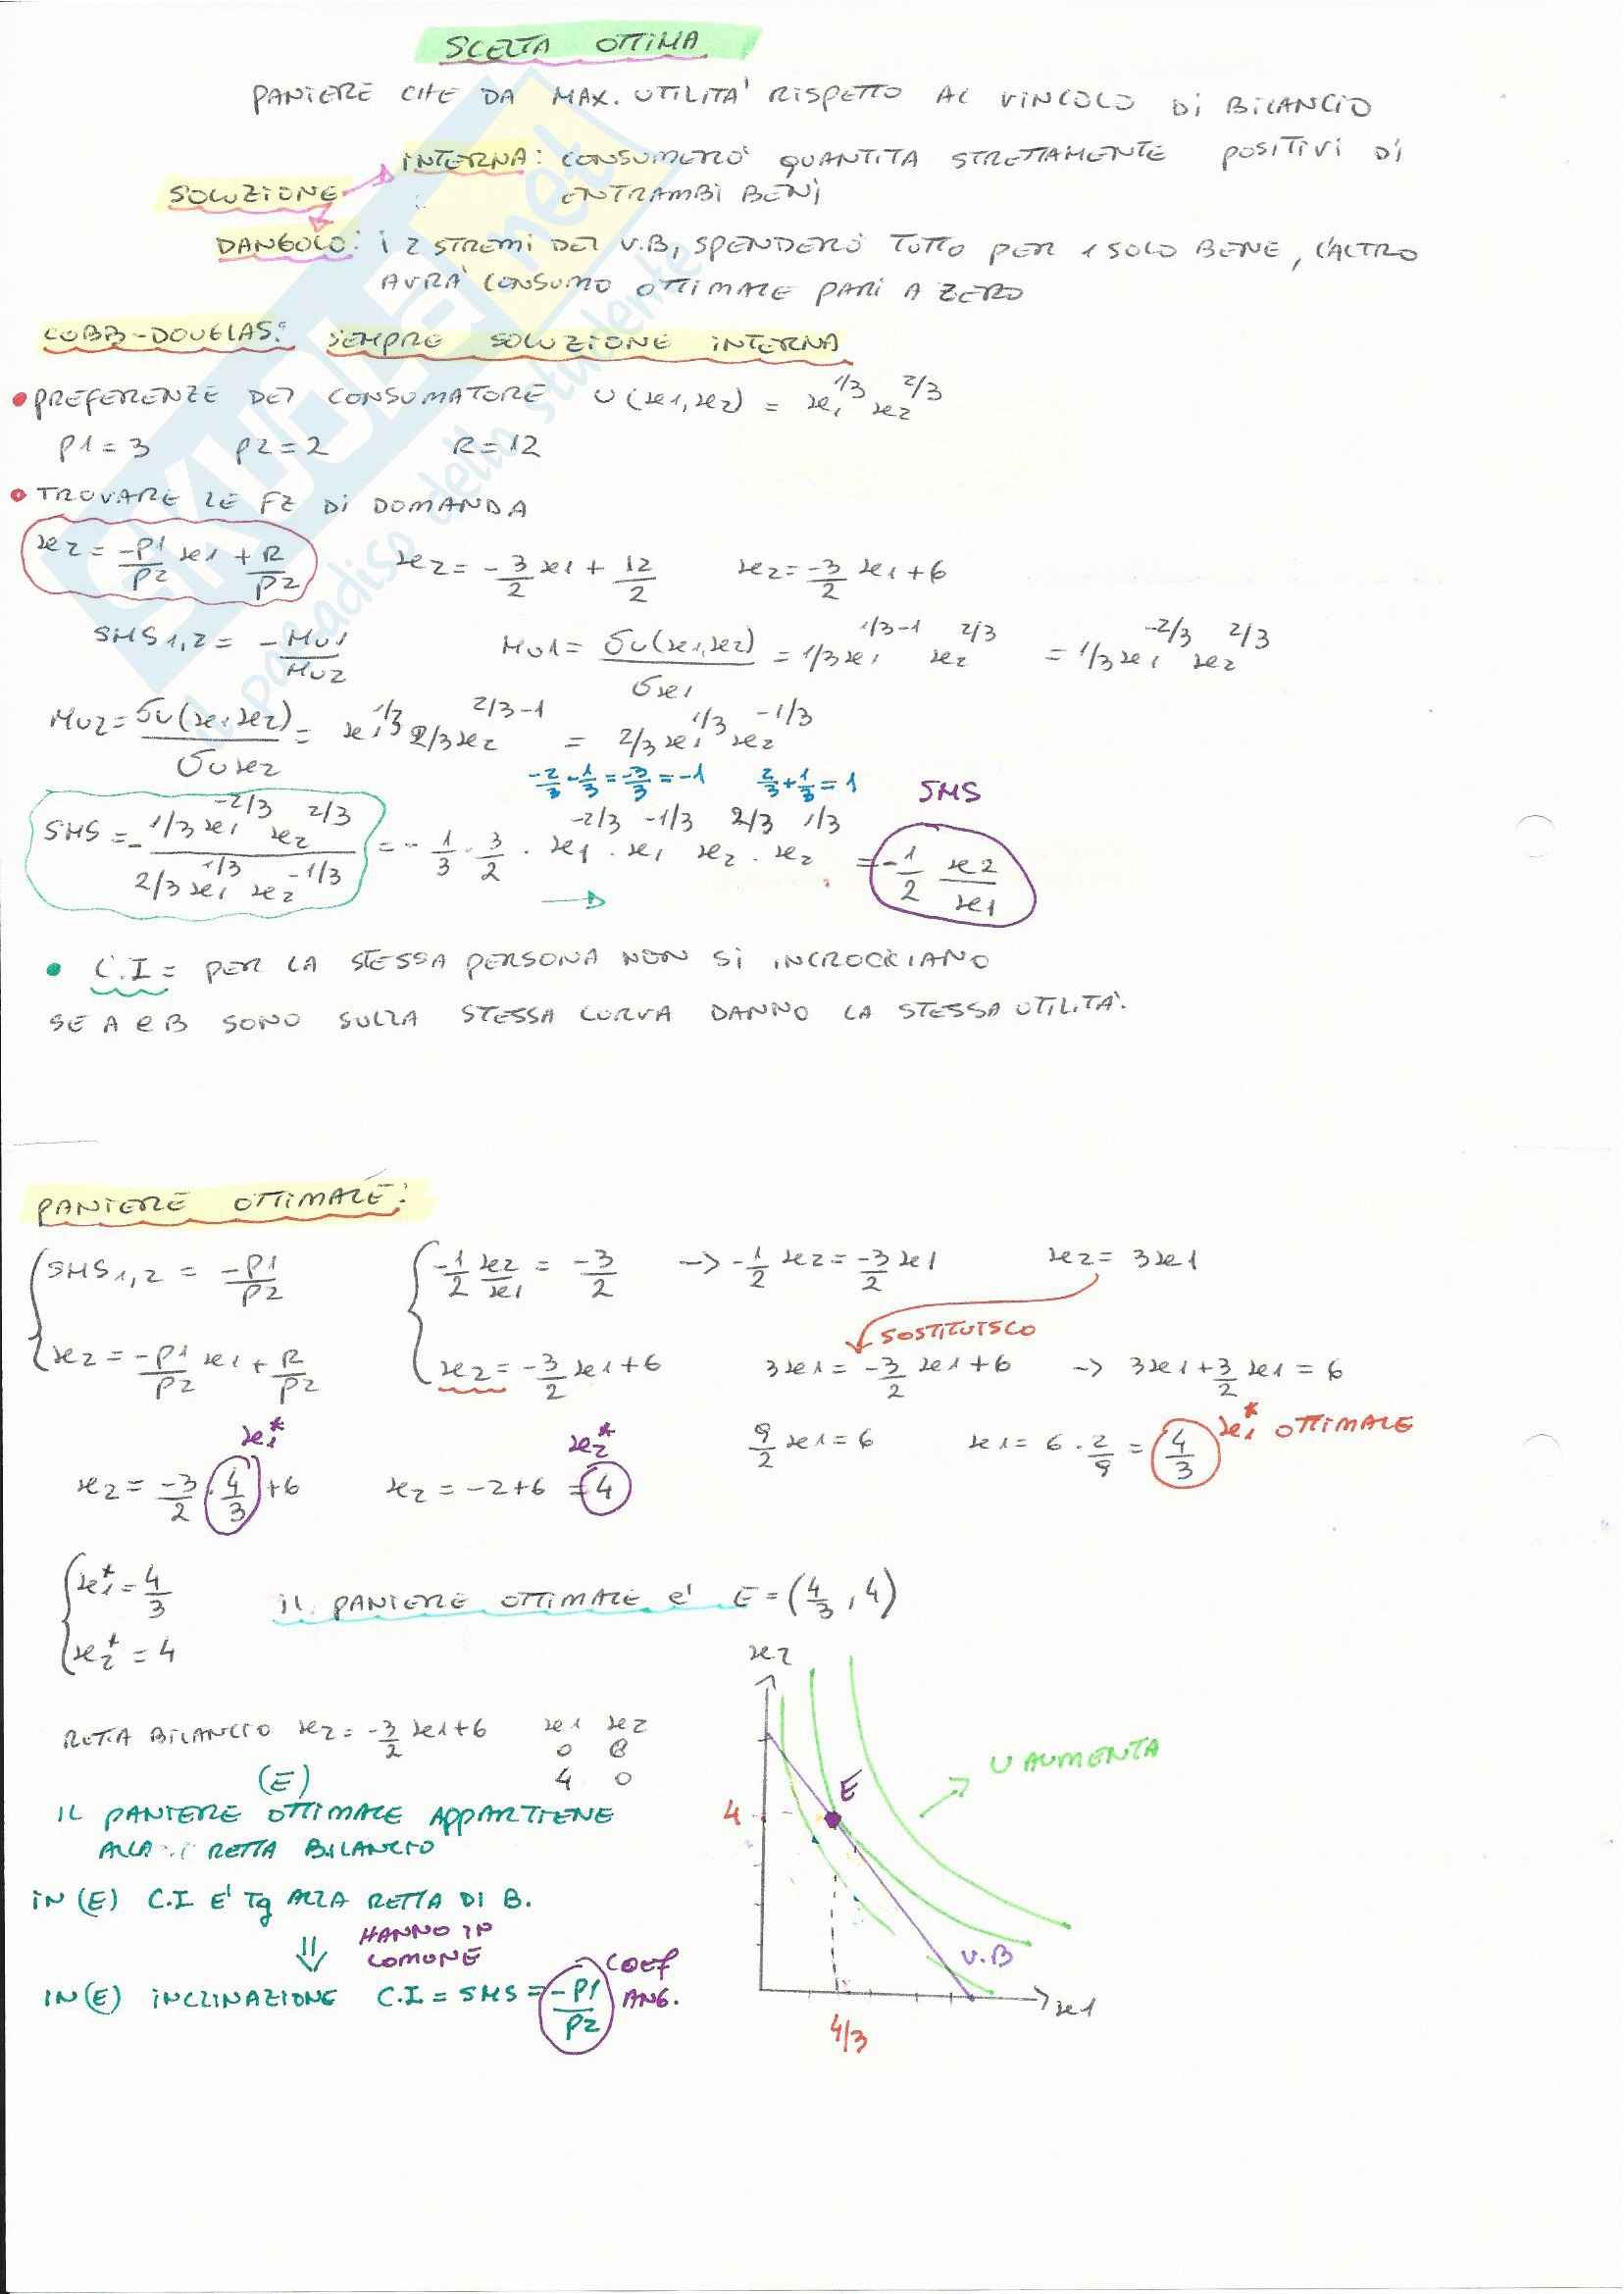 SCELTA OTTIMA
PANIERE CHE DA MAX. UTILITA' RISPETTO AL VINCOLO DI BILANCIO
INTERNA: CONSUMERO' QUANTITA STRETTAMENTE POSITIVI DI
SOLUZIONE ENTRAMBI BENI
DANGOLO: I 2 STREMI DEL V.B, SPENDERO' TUTTO PER 1 SOLO BENE, L'ALTRO
AVRA' CONSUMO OTTIMALE PARI A ZERO
COBB-DOUGLAS: SEMPRE SOLUZIONE INTERNA
• PREFERENZE DEL CONSUMATORE U(x1,x2) = x1^1/3 x2^2/3
P1=3 P2=2 R=12
• TROVARE LE FZ DI DOMANDA
x2 = -P1/P2 x1 + R/P2 x2 = -3/2 x1 + 12/2 x2 = -3/2 x1 + 6
SMS1,2 = -MU1/MU2 MU1 = σU(x1,x2)/σx1 = 1/3 x1^1/3-1 x2^2/3 = 1/3 x1^-2/3 x2^2/3
MU2 = σU(x1,x2)/σU x2 = x1^1/3 2/3 x2^2/3-1 = 2/3 x1^1/3 x2^-1/3
-2/3 - 1/3 = -3/3 = -1 2/3 + 1/3 = 1 SMS
SMS = - 1/3 x1^-2/3 x2^2/3 / 2/3 x1^1/3 x2^-1/3 = - 1/3 · 3/2 · x1^-2/3 · x1^-1/3 x2^2/3 · x2^1/3 = -1/2 x2/x1
→
• C.I = PER LA STESSA PERSONA NON SI INCROCIANO
SE A e B SONO SULLA STESSA CURVA DANNO LA STESSA UTILITA'.
PANIERE OTTIMALE:
SMS1,2 = -P1/P2 -1/2 x2/x1 = -3/2 -> -1/2 x2 = -3/2 x1 x2 = 3x1
SOSTITUISCO
x2 = -P1/P2 x1 + R/P2 x2 = -3/2 x1 + 6 3x1 = -3/2 x1 + 6 -> 3x1 + 3/2 x1 = 6
x1* x2* 9/2 x1 = 6 x1 = 6 · 2/9 = 4/3 x1* OTTIMALE
x2 = -3/2 · 4/3 + 6 x2 = -2+6 = 4
x1* = 4/3
IL PANIERE OTTIMALE E' E = (4/3, 4)
x2* = 4
x2
RETTA BILANCIO x2 = -3/2 x1 + 6 x1 x2
0 6
4 0
U AUMENTA
(E)
E
IL PANIERE OTTIMALE APPARTIENE
4
ALLA RETTA BILANCIO
IN (E) C.I E' Tg ALLA RETTA DI B.
HANNO IN
COMUNE
V.B
COEF
IN (E) INCLINAZIONE C.I = SMS = -P1/P2 ANG.
x1
4/3
SKUOLA.net
il paradiso dello studente